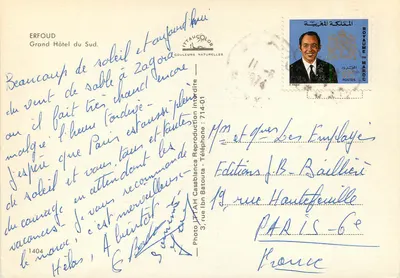 ERFOUD
Grand Hôtel du Sud.
COULEURS NATURELLES
Beaucoup de soleil et aujourd'hui
du vent de sable à Zagora
où il fait très chaud encore
malgré l'heure tardive.
J'espère que Paris est aussi plein
de soleil et vous tous et toutes
du courage en attendant les
vacances. Je vous recommande
le maroc, c'est merveilleux
Hélas, A bientôt
1404
Photo JEFAM Casablanca Reproduction interdite
3, rue Ibn Batouta - Téléphone : 714-01
المملكة المغربية
ROYAUME DU MAROC
11
1974
Mm et Mrs Les Employés
Editions J.B. Baillière
19, rue Hautefeuille
PARIS-6e
France